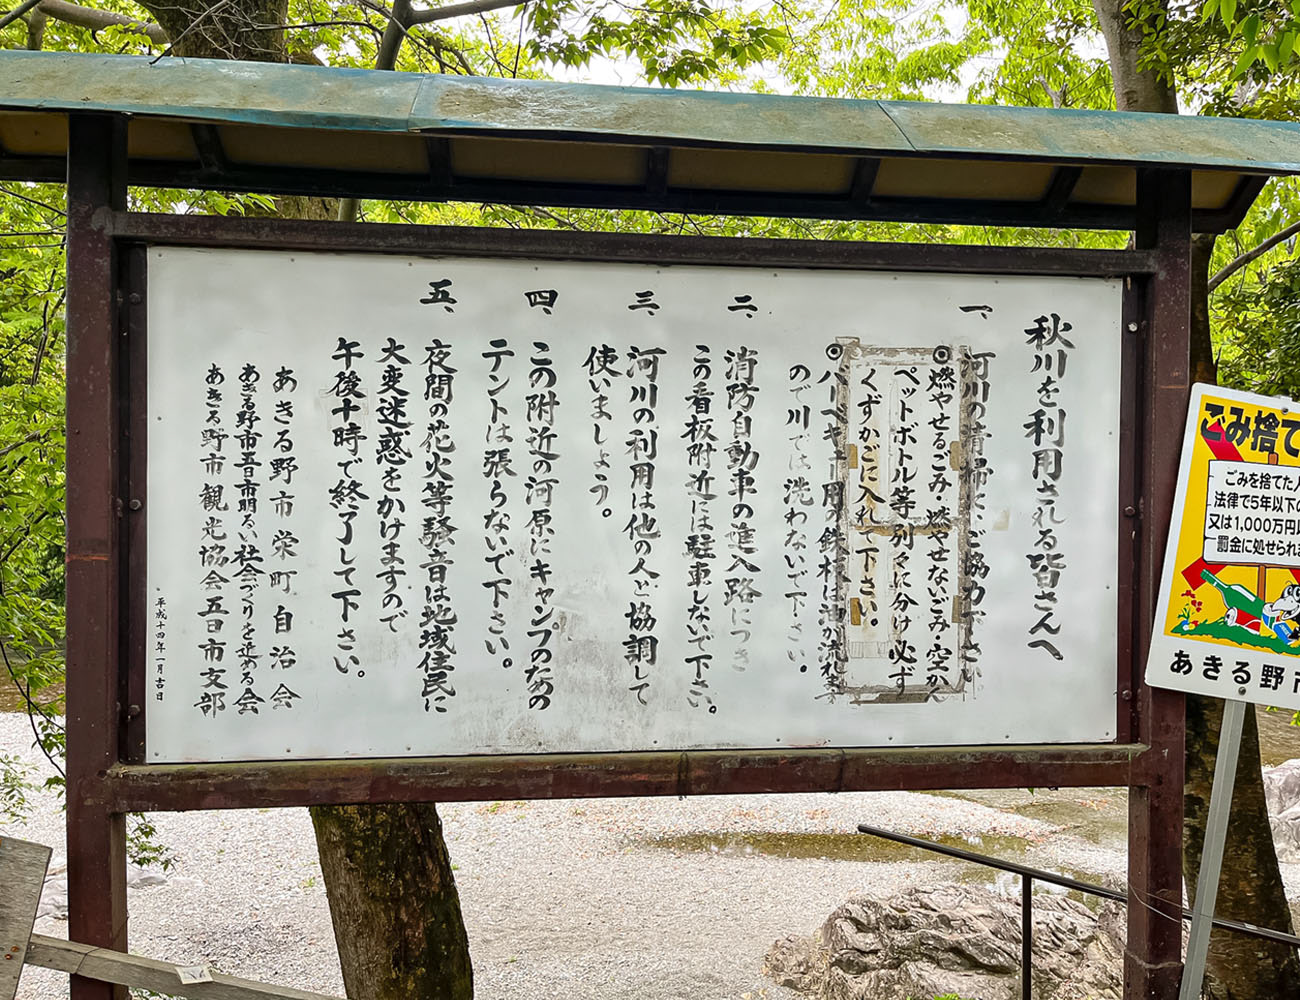 秋川を利用される皆さんへ
一、河川の清掃にご協力下さい
◎燃やせるごみ・燃やせないごみ・空かん
ペットボトル等別々に分け必ず
くずかごに入れて下さい。
◎バーベキュー用の鉄板は油が流れます
ので川では洗わないで下さい。
二、消防自動車の進入路につき
この看板附近には駐車しないで下さい。
三、河川の利用は他の人と協調して
使いましょう。
四、この附近の河原にキャンプのための
テントは張らないで下さい。
五、夜間の花火等騒音は地域住民に
大変迷惑をかけますので
午後十時で終了して下さい。
あきる野市栄町自治会
あきる野市五日市明るい社会づくりを進める会
あきる野市観光協会五日市支部
平成十四年一月吉日
ごみ捨て
ごみを捨てた人
法律で5年以下の
又は1,000万円以
罰金に処せられま
あきる野市